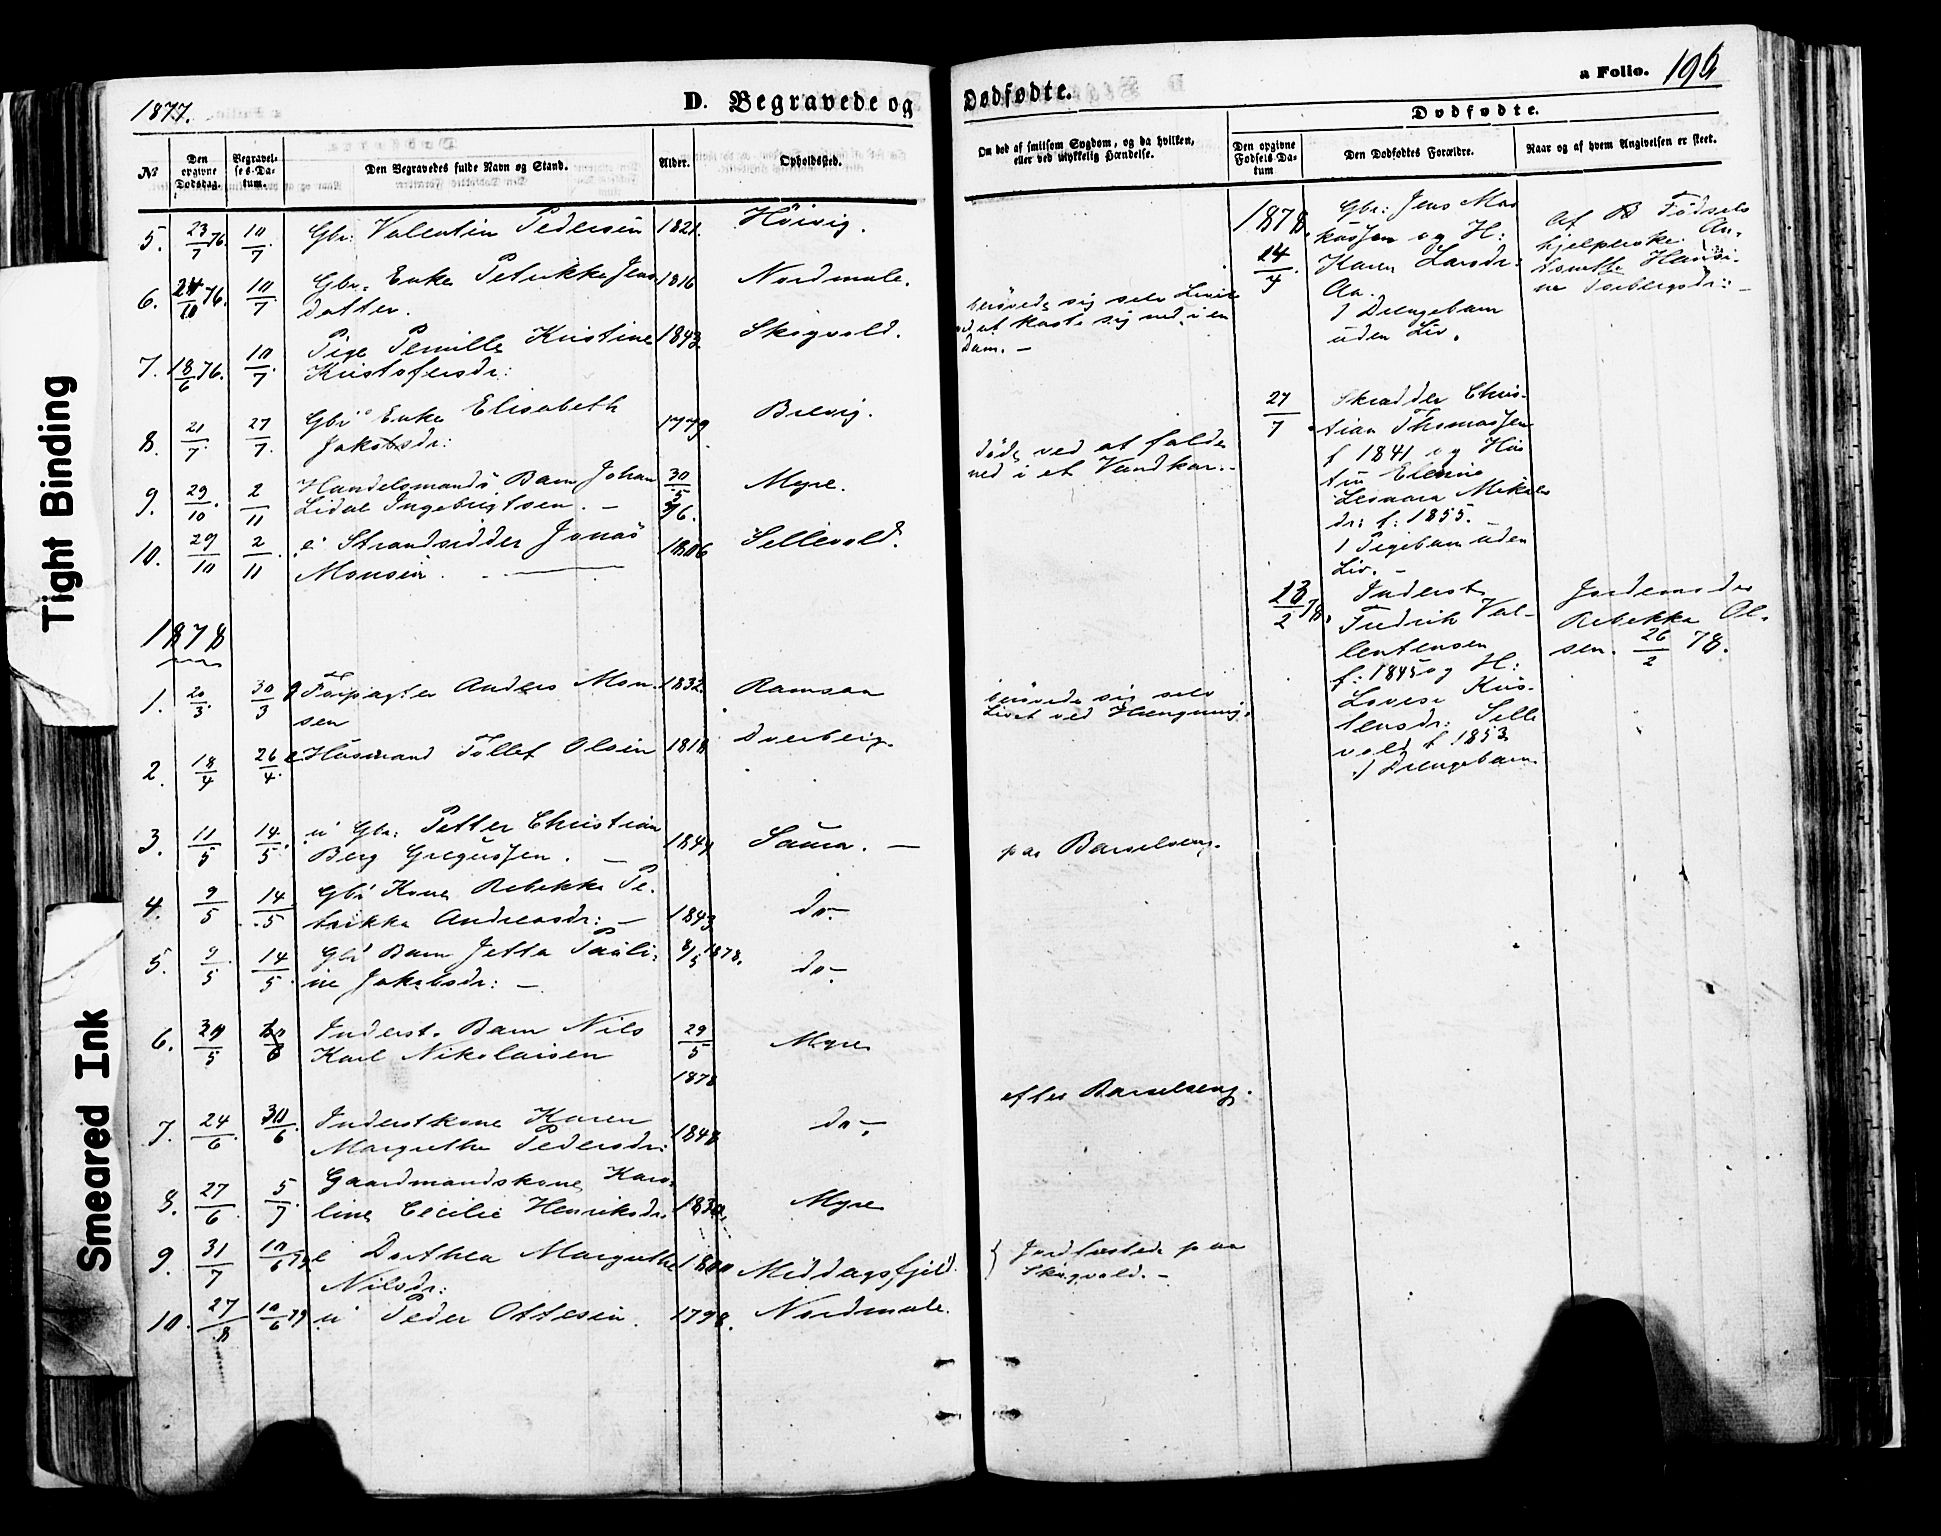 1877.
D. Begravede og
Dødfødte.
a Folio. 196
No
Den opgivne Dødsdag.
Begravelses-Datum.
Den Begravedes fulde Navn og Stand.
Alder.
Opholdssted.
Om død af smitsom Sygdom, og da hvilken, eller ved ulykkelig Hændelse.
Dødfødte.
Den opgivne Fødsels-Datum
Den Dødfødtes Forældre.
Naar og af hvem Angivelsen er skeet.
5. 23/7 76. 10/7 Gbr: Valentin Pedersen 1821. Höivig.
6. 24/10 76. 10/7 Gbr. Enke Petrikke Jens
datter. 1816 Nordmele.
7. 18/6 76. 10/7 Pige Pernille Kristine
Kristofersdr: 1843 Skogvold.
berövede sig selv Livet
ved at kaste sig ned i en
Dam. -
8. 21/7 27/7 Gbr Enke Elisabeth
Jakobsdr: 1779 Brevig.
9. 29/10 2/11 Handelsmands Barn Johan
Lidal Ingebrigtsen. - 30/5 76. Myre.
döde ved at falde
ned i et Vandkar. -
10. 29/10 2/11 e Strandsidder Jonas
Monsen. 1806 Sellevold.
1878
1. 20/3 30/3 Forpagter Anders Mon-
sen 1832. Ramsaa
berövede sig selv
Livet ved Hængning.
2. 18/4 26/4 e Husmand Tollef Olsen 1818 Dverberg.
3. 11/5 14/5 u Gbr: Petter Christian
Berg Gregussen. - 1844 Saura. -
4. 9/5 14/5 Gbr Kone Rebekka Pe-
trikka Andreasdr: - 1843 do-
paa Barselseng.
5. 9/5 14/5 Gbr Barn Jetta Pauli-
ne Jakobsdr: - 8/5 1878. do-
6. 30/5 Inderst. Barn Nils
Karl Nikolaisen 29/5 1878 Myre
7. 24/6 30/6 Inderstkone Karen
Margrethe Pedersdr: 1848 do-
efter Barselseng.
8. 27/6 5/7 Gaardmandskone Karo-
line Cecilie Henriksdr. Myre
9. 31/7 10/6 79 e Dorthea Margrethe
Nilsdr: 1800 Middagsfjeld.
10. 27/8 10/6 79 u Peder Ottesen. 1798. Nordmele.
} Jordfæstede paa
Skogvold. -
1878.
14/7
Gbr: Jens Mar
kussen og H:
Karen Larsdr:
Aa.
1 Drengebarn
uden Liv.
Af Fødsels
hjelperske An-
Hansi-
ne Torbergsdr: -
27/7
Skrædder Chris-
tian Thomassen
f 1841 og Hus
tru
Leonora Mikals
dr: f: 1855. -
1 Pigebarn uden
Liv. -
23/2 78.
Inderst
Fredrik Val-
lentinsen
f: 1845 og H:
Lovise Kris-
tensdr: Selle
vold f 1853
1 Drengebarn
Jordemoder
Rebekka Ol-
sen. 26/2 78.
Tight Binding
Smeared Ink